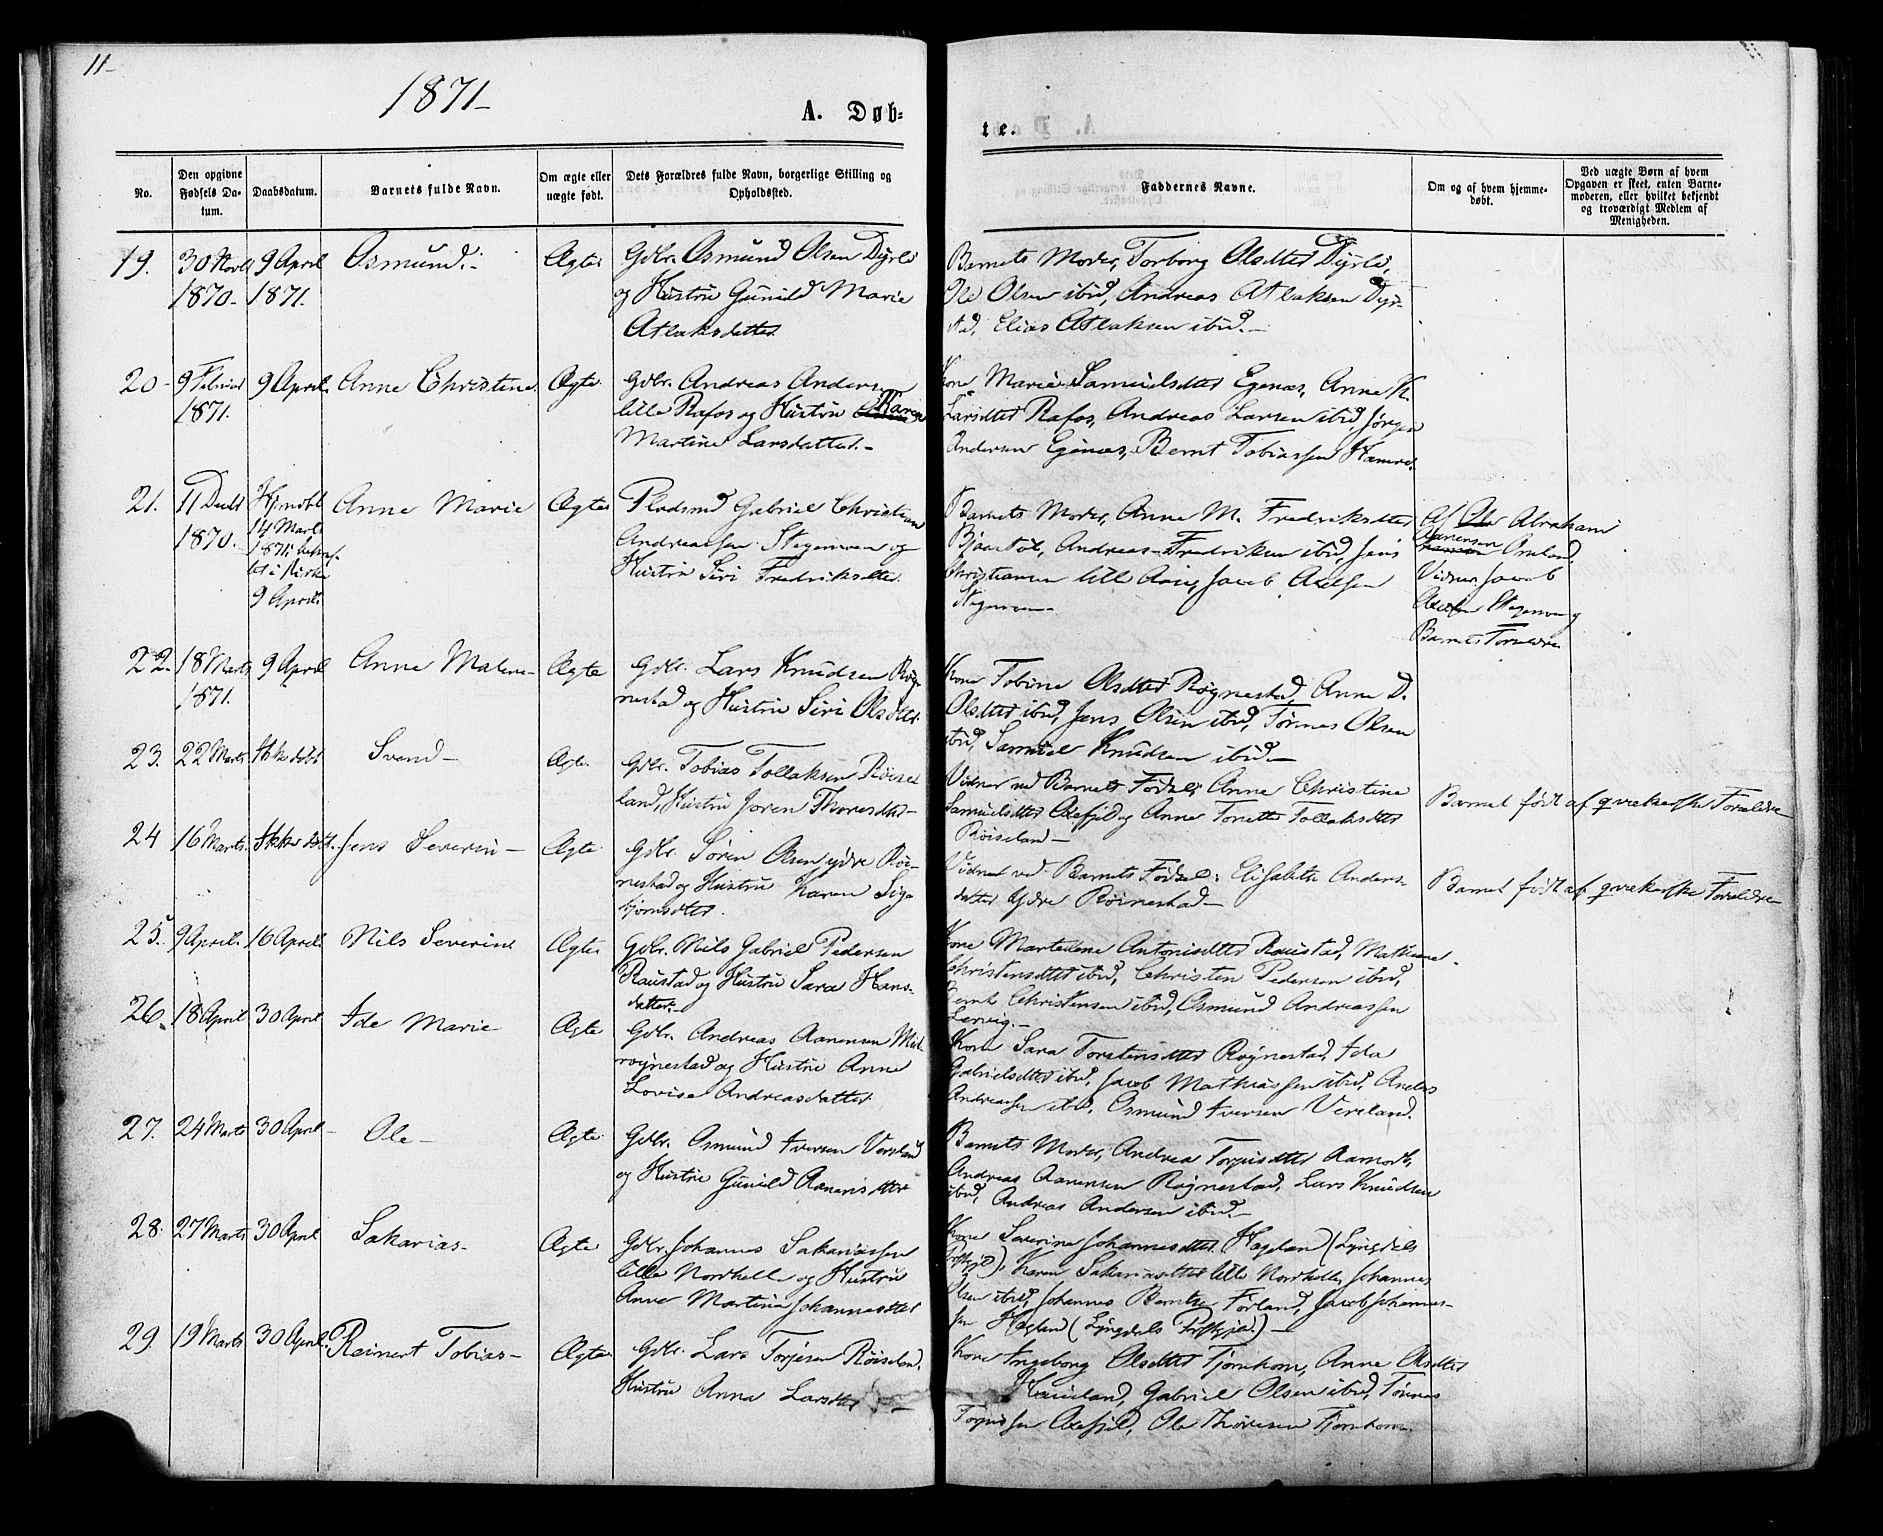 11-
1871-
A. Døb-
te.
No.
Den opgivne Fødsels Datum.
Daabsdatum.
Barnets fulde Navn.
Om ægte eller uægte født.
Dets Forældres fulde Navn, borgerlige Stilling og Opholdssted.
Faddernes Navne.
Om og af hvem hjemmedøbt.
Ved uægte Børn af hvem Opgaven er skeet, enten Barnemoderen, eller hvilket bekjendt og troværdigt Medlem af Menigheden.
19. 30 Novbr 9 April Osmund.- Ægte Gdbr. Osmund Olsen
1870- 1871. og Hustru Gunild Marie
Atlaksdatter
Barnets Moder, Torborg Olsdtter
Ole Olsen ibid, Andreas Atlaksen
Elias Atlaksen ibid.-
20- 9 Februar 9 April Anne Christine Ægte. Gdbr. Andreas Andersen
1871. lille Rafos og Hustru Karen
Martine Larsdatter.-
Kone Marie Samuelsdtter Egenæs, Anne K.
Larsdtter Rafos, Andreas Larsen ibid, Jørgen
Andersen Egenæs, Bernt Tobiassen
21. 11 Decbr Hjemdøbt Anne Marie Ægte Pladsmd Gabriel Christian
1870.- 14 Marts Andreassen Stegemoen og
1871, Hustru Siri Fredriksdtter.
i Kirke
9 April
Barnets Moder, Anne M. Fredriksdtter
Andreas Fredriksen ibid, Jens
Christiansen lille Jacob Axelsen
Stegemoen-
Af Abraham
Aanensen
Vidner Jacob
Axelsen Stegemoen og
Barnets Forældre
22. 18 Marts 9 April Anne Malene- Ægte Gdbr. Lars Knudsen Røg-
1871. nestad og Hustru Siri Olsdtter.
Kone Tobine Olsdtter Røgnestad, Anne D.
Olsdtter ibid, Jens Olsen ibid, Tønnes Olsen
ibid, Samuel Knudsen ibid.-
23. 22 Marts Ikke døbt Svend- Ægte. Gdbr. Tobias Tollaksen Røise-
land, Hustru Joren Thoresdtter-
Vidner ved Barnets Fødsel; Anne Christine
Samuelsdtter og Anne Tonette Tollaksdtter
Røiseland-
Barnet født af qvækerske Forældre
24 16 Marts. Ikke døbt. Jens Severin- Ægte. Gdbr. Søren Olsen ydre Røi-
nestad og Hustru Karen Sig-
bjørnsdtter.
Vidner ved Barnets Fødsel: Elisabeth Anders-
datter ydre Røinestad-
Barnet født af qvækerske Forældre
25. 9 April. 16 April Nils Severin Ægte Gdbr. Nils Gabriel Pedersen
Raustad og Hustru Sara Hans-
datter.-
Kone Martedene Antonisdtter Raustad, Mathine
Christensdtter ibid, Christen Pedersen ibid,
Bernt Christensen ibid, Osmund Andreassen
Lervig.-
26. 18 April 30 April Ide Marie Ægte Gdbr. Andreas Aanensen
røgnestad og Hustru Anne
Lovise Andreasdatter
Kone Sara Torstensdtter Røgnestad, Ida
Gabrielsdtter ibid, Jacob Mathiassen ibid, Anders
Andreassen ibid, Osmund Iversen Versland.
27. 24 Marts 30 April- Ole- Ægte. Gdbr. Osmund Iversen Versland
og Hustru Gunild Aanensdtter
Barnets Moder, Andrea Torjusdtter
Andreas Aanensen Røgnestad, Lars Knudsen
ibid, Andreas Andersen ibid.-
28. 27 Marts 30 April Sakarias- Ægte Gdbr. Johannes Sakariassen
lille Nordhelle og Hustru
Anne Martine Johannesdtter
Kone Severine Johannesdtter Hægland (Lyngdals
Præstgjeld), Karen Sakariasdtter lille Nordhelle, Johannes
Olsen ibid, Johannes Berntsen Førland, Jacob Johannes-
sen Hægland (Lyngdals Præstgjæld.)-
29. 19 Marts 30 April. Reinert Tobias- Ægte Gdbr. Lars Torjesen Røiseland.
Hustru Anna Larsdtter -
Kone Ingeborg Olsdtter Tjomhom, Anne Olsdtter
Gabriel Olsen ibid, Tønnes
Ole Thoresen Tjomhom.